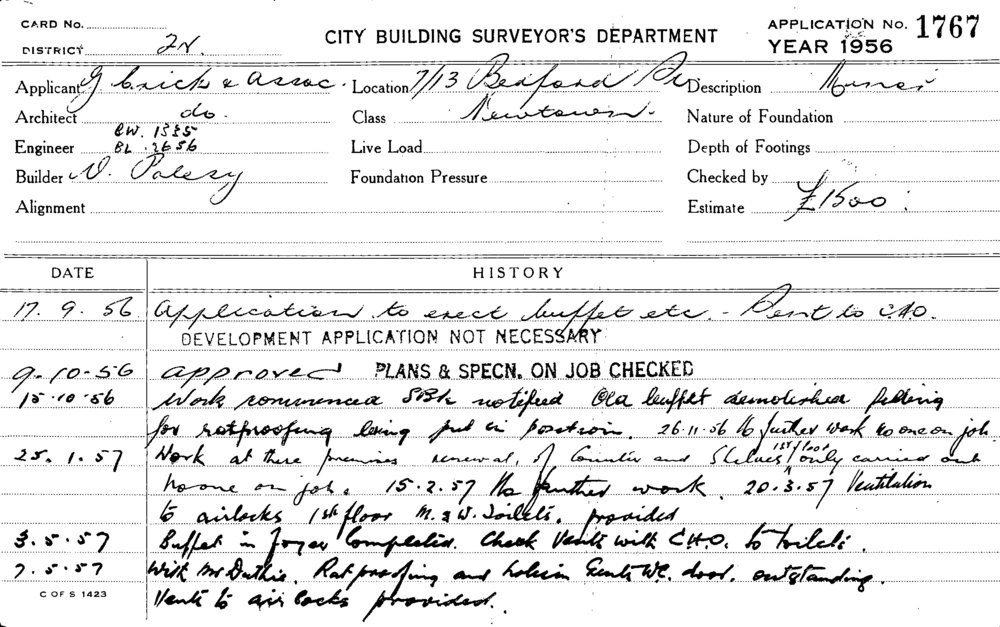 CARD No.
DISTRICT 2N.
CITY BUILDING SURVEYOR'S DEPARTMENT
APPLICATION No. 1767
YEAR 1956
Applicant G Crick & Assoc. Location 7/13 Bedford Description Minor
Architect do. Class Newtown. Nature of Foundation
Engineer BW. 1335 BL. 2656 Live Load Depth of Footings
Builder Foundation Pressure Checked by
Alignment Estimate £1500
DATE HISTORY
17. 9. 56 Application to erect buffet etc. - Sent to C.H.O.
DEVELOPMENT APPLICATION NOT NECESSARY
9-10-56 approved PLANS & SPECN. ON JOB CHECKED
15-10-56 Work commenced notified Old buffet demolished filling
for ratproofing being put in position. 26-11-56 No further work no one on job
25. 1. 57 Work at these premises renewal, of Counter and Shelves 1st floor only carried out
no one on job. 15-2-57 No further work. 20-3-57 Ventilation
to airlocks 1st floor M. & W. Toilets, provided
3-5-57 Buffet in foyer Completed. Check Vents with C.H.O. to toilets.
7-5-57 With Mr Duthie. Ratproofing and hole in Gents WC. door. outstanding.
Vents to air locks provided.
C OF S 1423